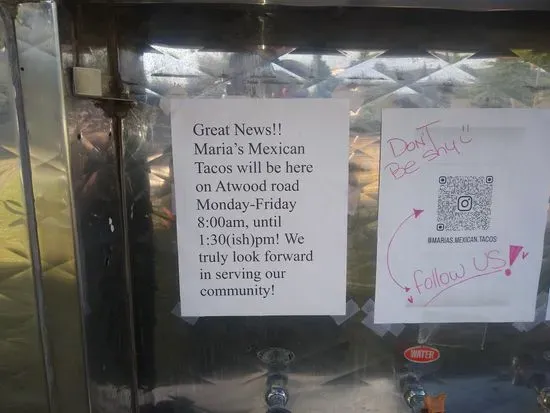 Great News!!
Maria's Mexican
Tacos will be here
on Atwood road
Monday-Friday
8:00am, until
1:30(ish)pm! We
truly look forward
in serving our
community!
DON'T
Be shy
@MARIAS.MEXICAN.TACOS
follow US!
WATER